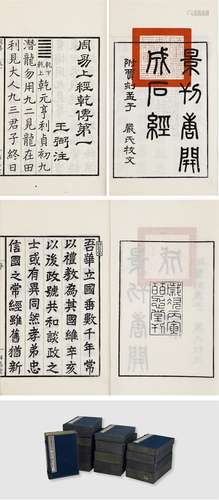 景刊唐開
成石經
附賈刻孟子
嚴氏校文
周易上經乾傳第一
王弼注
乾下
乾上
乾元亨利貞初九
潛龍勿用九二見龍在田
利見大人九三君子終日
吾華立國垂數千年常
以禮教為其國維辛亥
以後號共和談政之
士或有異同然孝弟忠
信國之常經雖舊猶新
歲次丙寅
皕忍堂刊